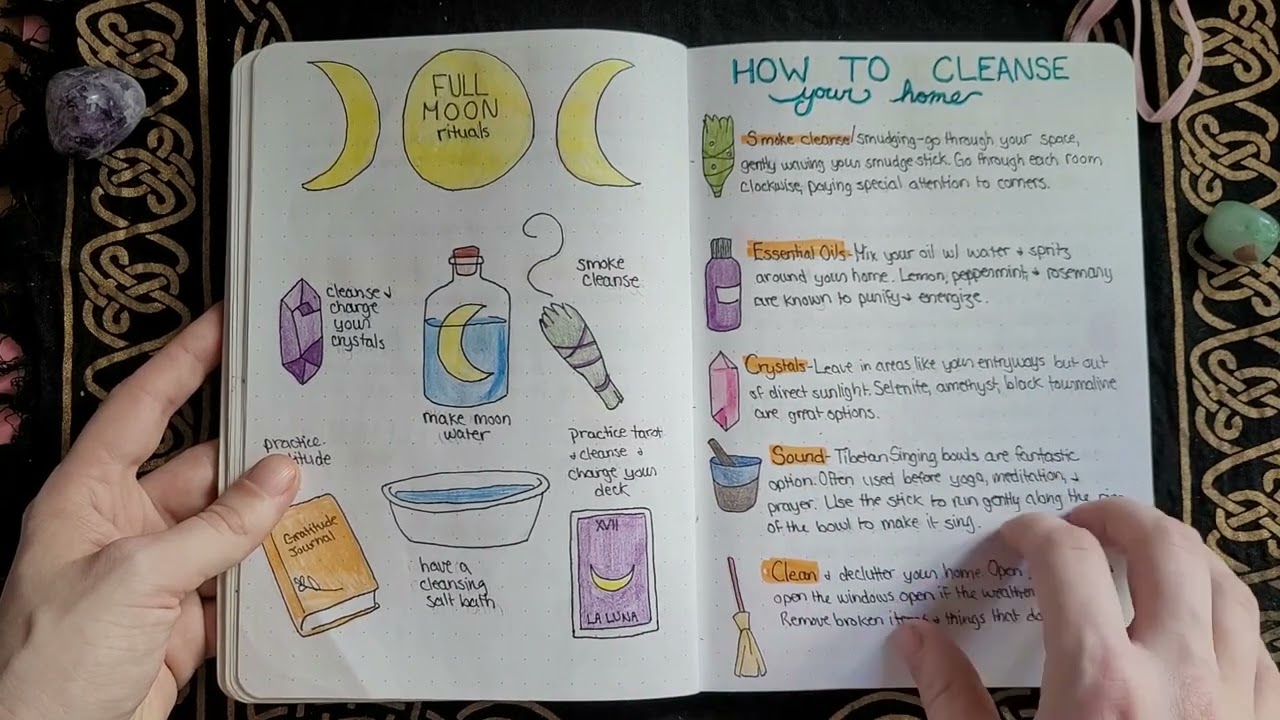 FULL
MOON
rituals
cleanse &
charge
your
crystals
make moon
water
smoke
cleanse
practice
Gratitude
Journal
have a
cleansing
salt bath
practice tarot
& cleanse &
charge your
deck
XVII
LA LUNA
HOW TO CLEANSE
your home
Smoke cleanse/smudging-go through your space,
gently waving your smudge stick. Go through each room
clockwise, paying special attention to corners.
Essential Oils-Mix your oil w/ water & spritz
around your home. Lemon, peppermint, & rosemary
are known to purify & energize.
Crystals-Leave in areas like your entryways but out
of direct sunlight. Selenite, amethyst, black tourmaline
are great options.
Sound-Tibetan Singing bowls are fantastic
option. Often used before yoga, meditation, &
prayer. Use the stick to run gently along the
of the bowl to make it sing.
Clean & declutter your home. Open
open the windows open if the weather
Remove broken items & things that